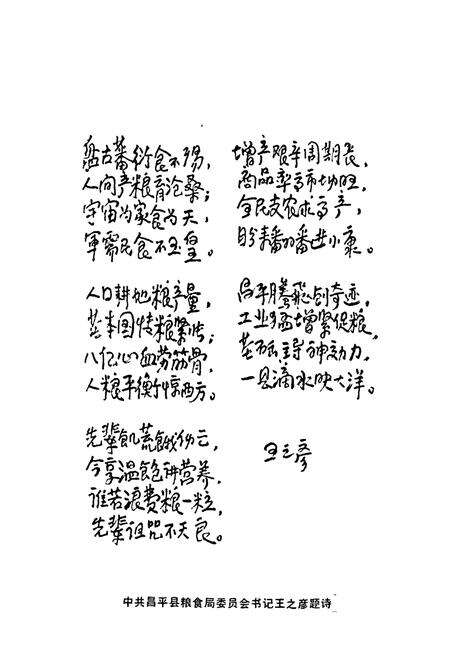 盘古蕃衍食不易，
人间产粮育沧桑；
宇宙为家食为天，
军需民食不空皇。
人口耕地粮产量，
基本国情粮紧张；
八亿心血劳筋骨，
人粮平衡惊西方。
先辈饥荒饿伤亡，
今享温饱讲营养，
谁若浪费粮一粒，
先辈诅咒不天良。
增产艰辛周期长，
商品率高市场旺，
全民支农求高产，
盼奔小康。
昌平腾飞创奇迹，
工业增紧促粮，
神动力，
一县滴水映大洋。
王之彦
中共昌平县粮食局委员会书记王之彦题诗